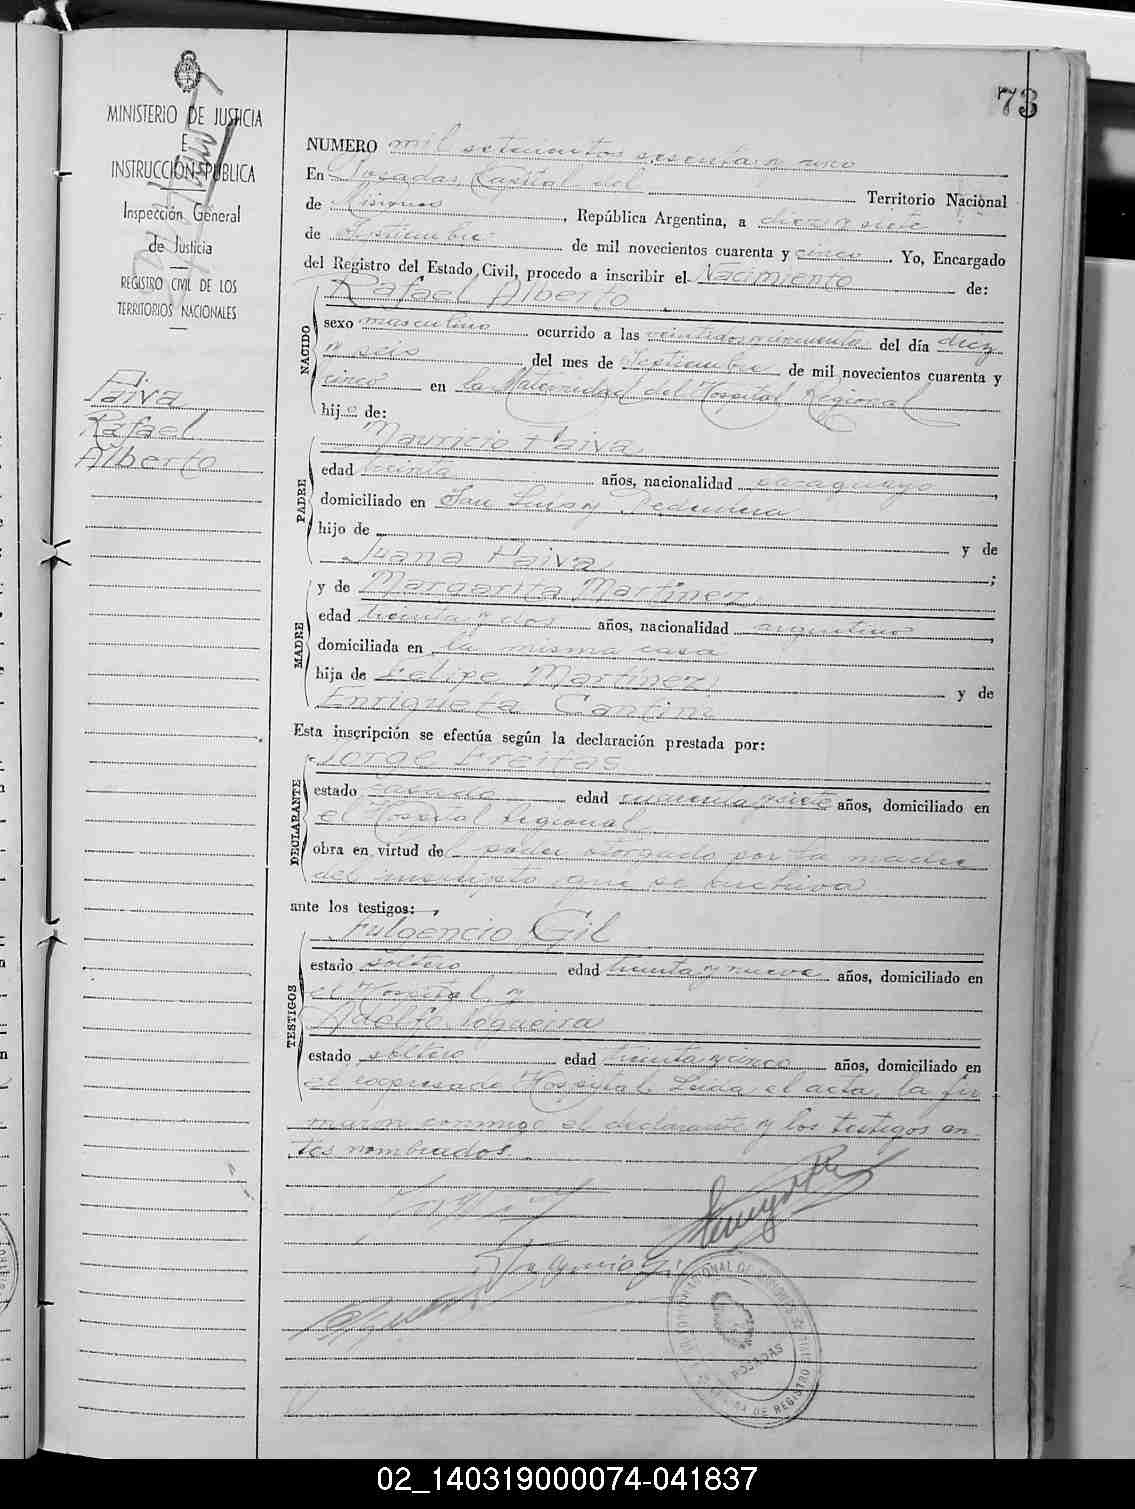 73
MINISTERIO DE JUSTICIA
E
INSTRUCCION PUBLICA
Inspección General
de Justicia
REGISTRO CIVIL DE LOS
TERRITORIOS NACIONALES
Paiva
Rafael
Alberto
NUMERO mil setecientos sesenta y uno
En Posadas, Capital del Territorio Nacional
de Misiones, República Argentina, a diez y siete
de Septiembre de mil novecientos cuarenta y cinco. Yo, Encargado
del Registro del Estado Civil, procedo a inscribir el Nacimiento de:
NACIDO
Rafael Alberto
sexo masculino ocurrido a las veintidos y cincuenta del día diez
y seis del mes de Septiembre de mil novecientos cuarenta y
cinco en la Maternidad del Hospital Regional
hijo de:
PADRE
Mauricio Paiva
edad treinta años, nacionalidad paraguayo,
domiciliado en San Luis y Pedernera
hijo de y de
Juana Paiva;
MADRE
y de Margarita Martinez
edad treinta y dos años, nacionalidad argentina,
domiciliada en la misma casa
hija de Felipe Martinez y de
Enriqueta Cantini
Esta inscripción se efectúa según la declaración prestada por:
DECLARANTE
Jorge Freitas
estado casado edad cincuenta y siete años, domiciliado en
el Hospital Regional
obra en virtud de poder otorgado por la madre
del inscripto que se archiva
ante los testigos:
TESTIGOS
Fulgencio Gil
estado soltero edad treinta y nueve años, domiciliado en
el Hospital y
Adolfo Nogueira
estado soltero edad treinta y cinco años, domiciliado en
el expresado Hospital. Leida el acta, la fir
maron conmigo el declarante y los testigos an-
tes nombrados.
Fulgencio Gil
POSADAS
02_140319000074-041837